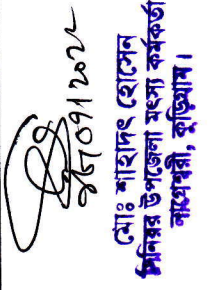 মোঃ শাহাদৎ হোসেন
সিনিয়র উপজেলা মৎস্য কর্মকর্তা
নাগেশ্বরী, কুড়িগ্রাম।